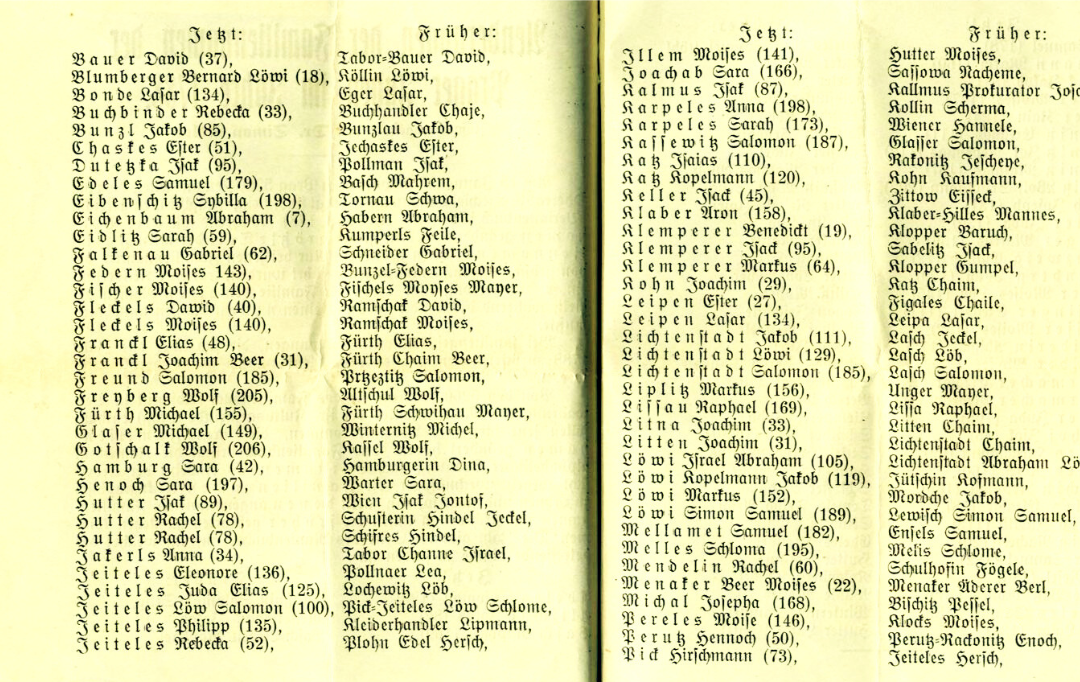 Jetzt: Früher:
Bauer David (37), Tabor=Bauer David,
Blumberger Bernard Löwi (18), Köllin Löwi,
Bonde Lasar (134), Eger Lasar,
Buchbinder Rebecka (33), Buchhandler Chaje,
Bunzl Jakob (85), Bunzlau Jakob,
Chaskes Ester (51), Jechaskes Ester,
Dutetzka Isak (95), Pollman Isak,
Edeles Samuel (179), Basch Mahrem,
Eibenschitz Sybilla (198), Tornau Schwa,
Eichenbaum Abraham (7), Habern Abraham,
Eidlitz Sarah (59), Kumperls Feile,
Falkenau Gabriel (62), Schneider Gabriel,
Federn Moises 143), Bunzel=Federn Moises,
Fischer Moises (140), Fischels Moyses Mayer,
Fleckels Dawid (40), Ramschak David,
Fleckels Moises (140), Ramschak Moises,
Franckl Elias (48), Fürth Elias,
Franckl Joachim Beer (31), Fürth Chaim Beer,
Freund Salomon (185), Prtzeztitz Salomon,
Freyberg Wolf (205), Altschul Wolf,
Fürth Michael (155), Fürth Schwihau Mayer,
Glaser Michael (149), Winternitz Michel,
Gotschalk Wolf (206), Kassel Wolf,
Hamburg Sara (42), Hamburgerin Dina,
Henoch Sara (197), Warter Sara,
Hutter Isak (89), Wien Isak Jontof,
Hutter Rachel (78), Schusterin Hindel Jeckel,
Hutter Rachel (78), Schifres Hindel,
Jakerls Anna (34), Tabor Channe Israel,
Jeiteles Eleonore (136), Pollnaer Lea,
Jeiteles Juda Elias (125), Lochewitz Löb,
Jeiteles Löw Salomon (100), Pick=Jeiteles Löw Schlome,
Jeiteles Philipp (135), Kleiderhandler Lipmann,
Jeiteles Rebecka (52), Plohn Edel Hersch,
Jetzt: Früher:
Illem Moises (141), Hutter Moises,
Joachab Sara (166), Sassowa Nacheme,
Kalmus Isak (87), Kallmus Prokurator
Karpeles Anna (198), Kollin Scherma,
Karpeles Sarah (173), Wiener Hannele,
Kassewitz Salomon (187), Glasser Salomon,
Katz Isaias (110), Rakonitz Jescheye,
Katz Kopelmann (120), Kohn Kaufmann,
Keller Isack (45), Zittow Eisseck,
Klaber Aron (158), Klaber=Hilles Mannes,
Klemperer Benedickt (19), Klopper Baruch,
Klemperer Isack (95), Sabelitz Isack,
Klemperer Markus (64), Klopper Gumpel,
Kohn Joachim (29), Katz Chaim,
Leipen Ester (27), Figales Chaile,
Leipen Lasar (134), Leipa Lasar,
Lichtenstadt Jakob (111), Lasch Jeckel,
Lichtenstadt Löwi (129), Lasch Löb,
Lichtenstadt Salomon (185), Lasch Salomon,
Liplitz Markus (156), Unger Mayer,
Lissau Raphael (169), Lissa Raphael,
Litna Joachim (33), Litten Chaim,
Litten Joachim (31), Lichtenstadt Chaim,
Löwi Israel Abraham (105), Lichtenstadt Abraham Lö
Löwi Kopelmann Jakob (119), Jütschin Kofmann,
Löwi Markus (152), Mordche Jakob,
Löwi Simon Samuel (189), Lewisch Simon Samuel,
Mellamet Samuel (182), Ensels Samuel,
Melles Schloma (195), Melis Schlome,
Mendelin Rachel (60), Schulhofin Fögele,
Menaker Beer Moises (22), Menaker Äderer Berl,
Michal Josepha (168), Bischitz Pessel,
Pereles Moise (146), Klocks Moises,
Perutz Hennoch (50), Perutz=Rackonitz Enoch,
Pick Hirschmann (73), Jeiteles Hersch,